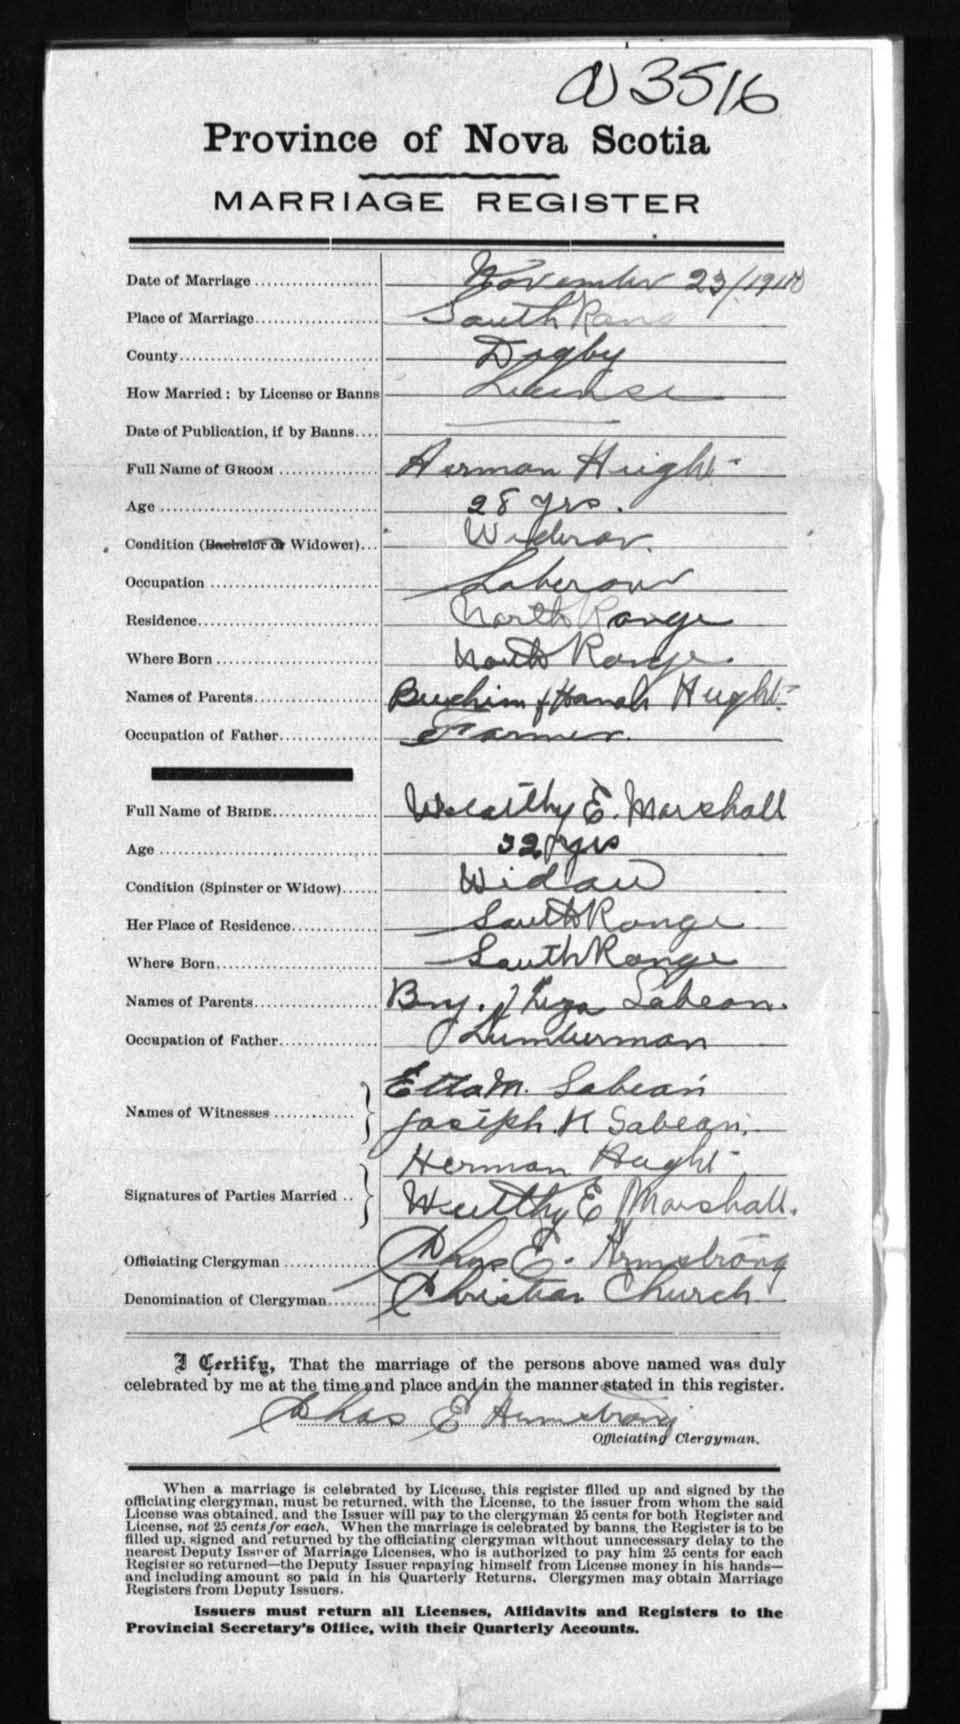 3516
Province of Nova Scotia
MARRIAGE REGISTER
Date of Marriage November 23/
Place of Marriage South
County Digby
How Married : by License or Banns License
Date of Publication, if by Banns
Full Name of GROOM Herman Hight
Age 28 yrs.
Condition (Bachelor or Widower) Widower.
Occupation Laberour
Residence North Range
Where Born North Range.
Names of Parents & Hanah Hught
Occupation of Father Farmer.
Full Name of BRIDE E. Marshall
Age yrs
Condition (Spinster or Widow) Widow
Her Place of Residence South Range
Where Born South Range
Names of Parents Benj. & Liza Sabean.
Occupation of Father Lumberman
Names of Witnesses Etta M. Sabean
Joseph. H Sabean.
Signatures of Parties Married Herman Haght
Wealthy E Marshall.
Officiating Clergyman Chas E. Armstrong
Denomination of Clergyman Christian Church
I Certify, That the marriage of the persons above named was duly
celebrated by me at the time and place and in the manner stated in this register.
Chas E Armstrong
Officiating Clergyman.
When a marriage is celebrated by License, this register filled up and signed by the
officiating clergyman, must be returned, with the License, to the issuer from whom the said
License was obtained, and the Issuer will pay to the clergyman 25 cents for both Register and
License, not 25 cents for each. When the marriage is celebrated by banns, the Register is to be
filled up, signed and returned by the officiating clergyman without unnecessary delay to the
nearest Deputy Issuer of Marriage Licenses, who is authorized to pay him 25 cents for each
Register so returned—the Deputy Issuer repaying himself from License money in his hands—
and including amount so paid in his Quarterly Returns. Clergymen may obtain Marriage
Registers from Deputy Issuers.
Issuers must return all Licenses, Affidavits and Registers to the
Provincial Secretary's Office, with their Quarterly Accounts.